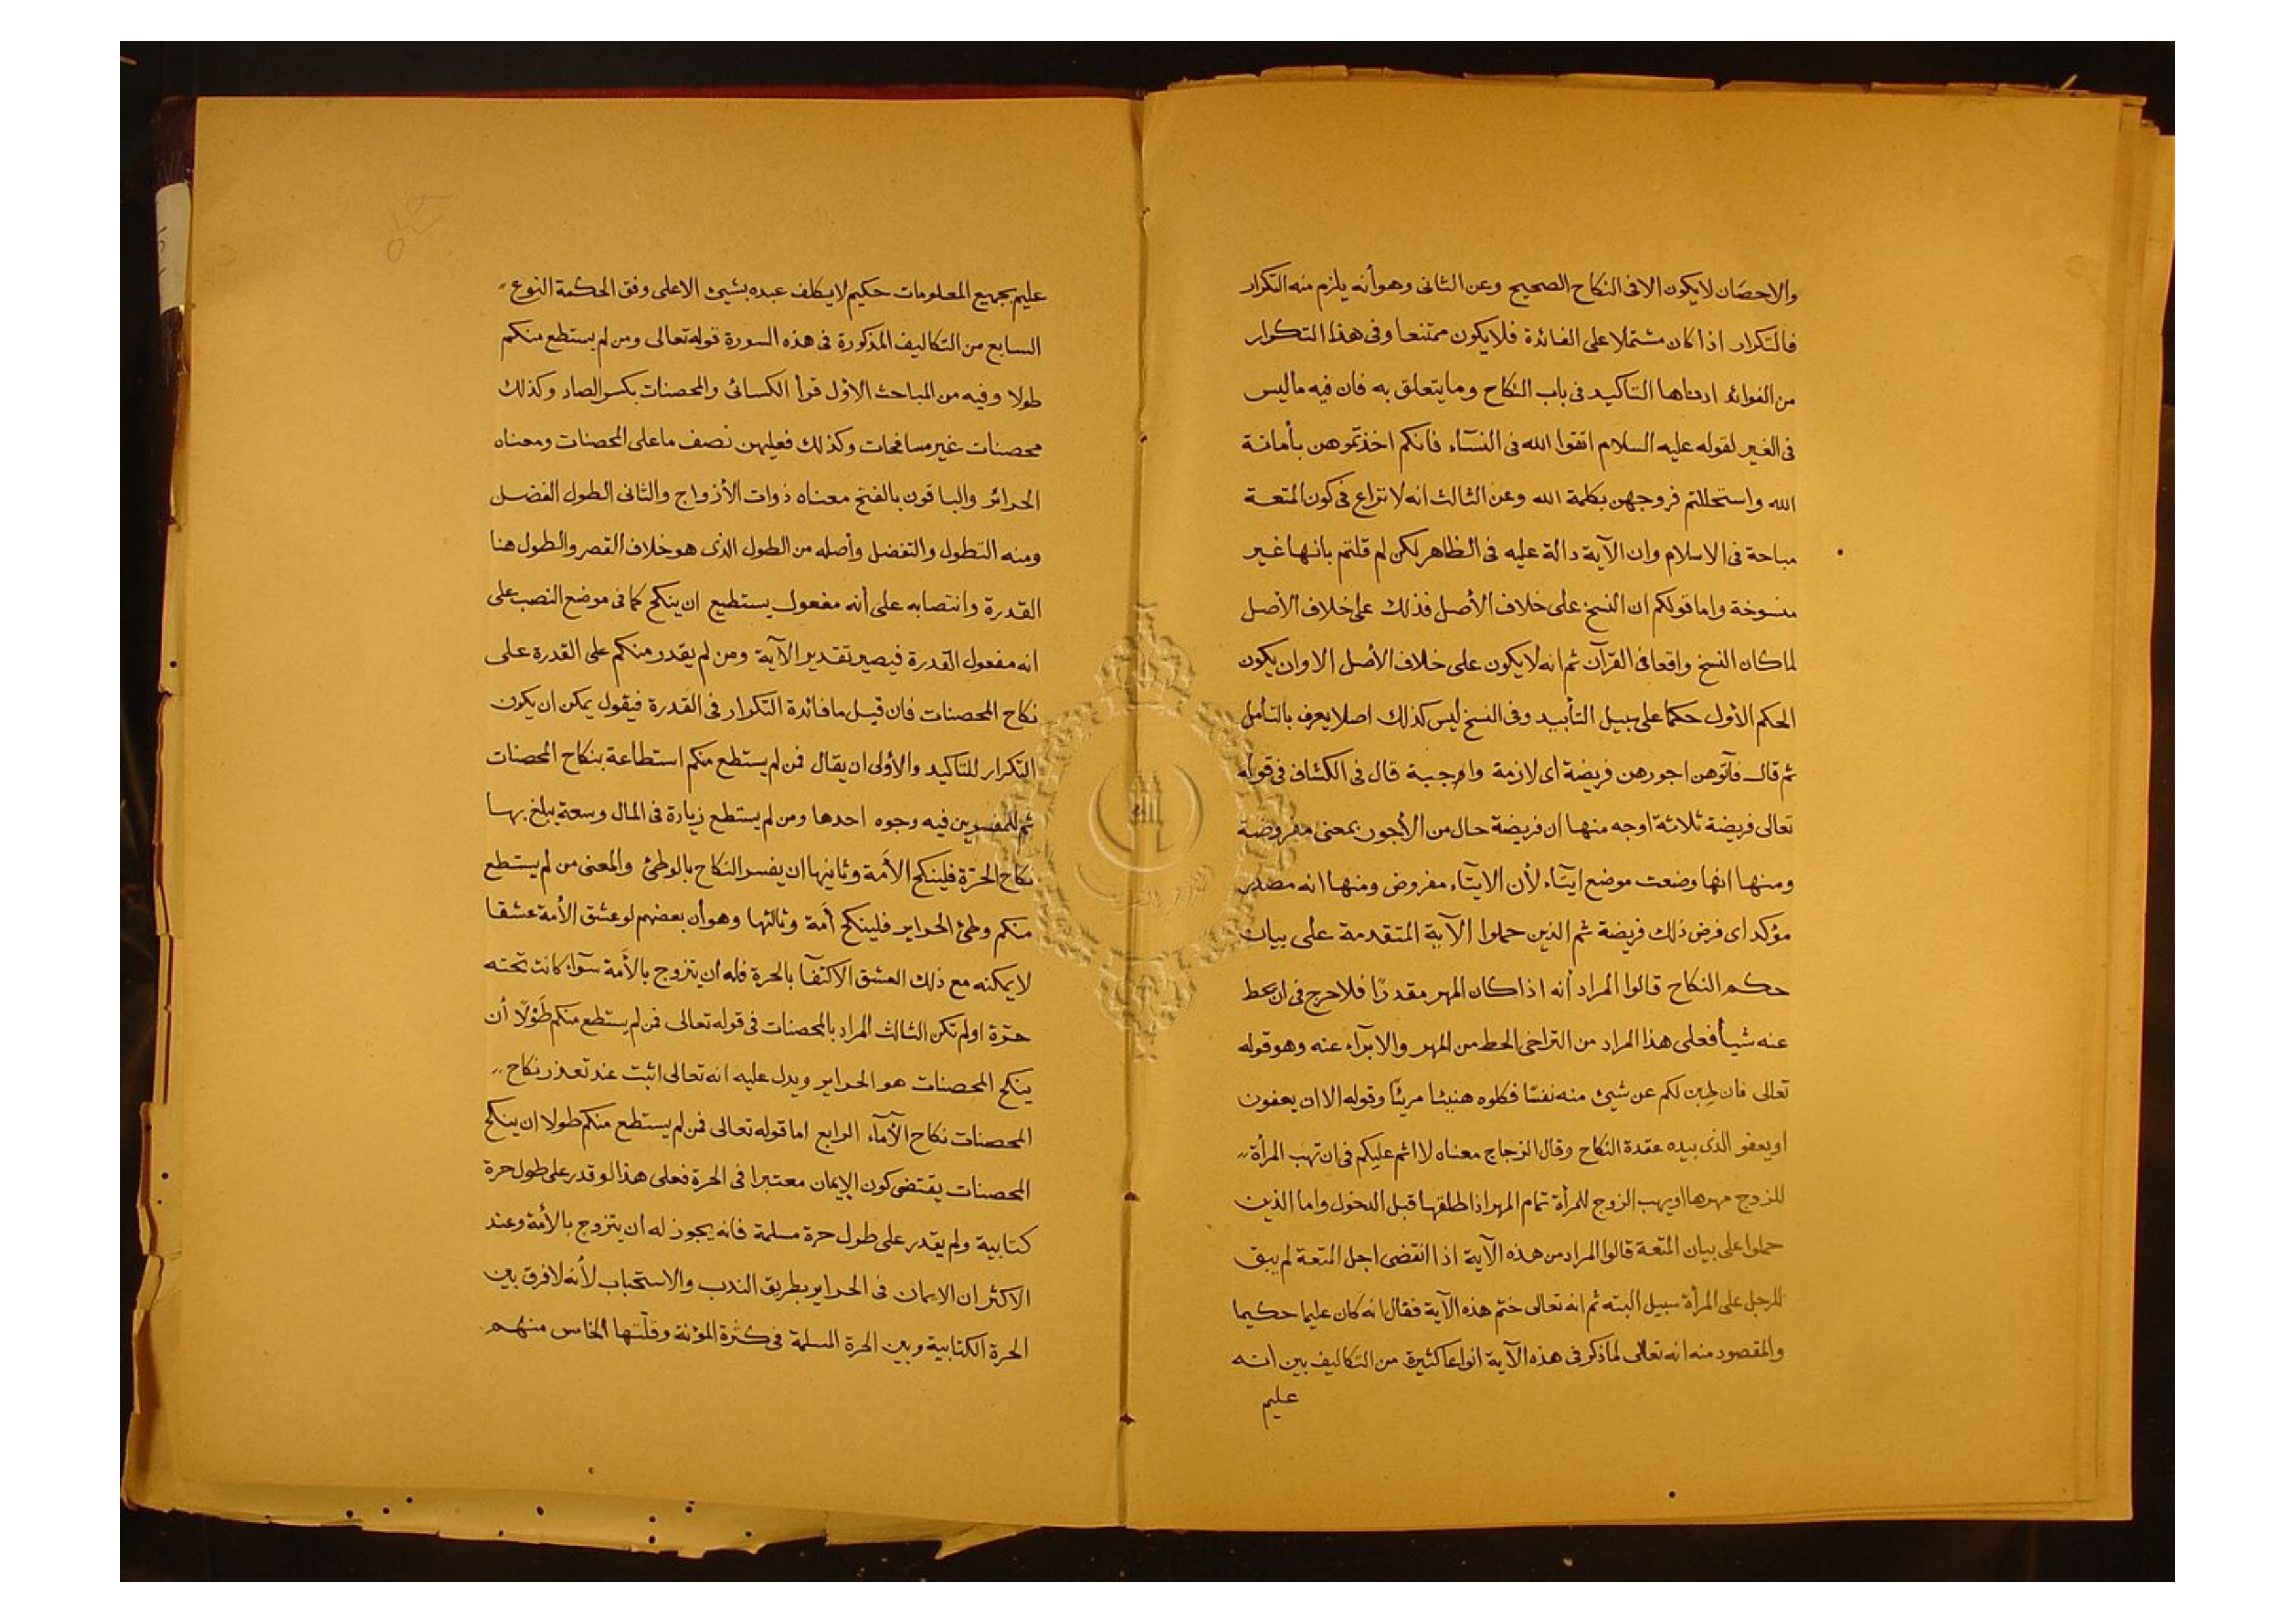 والاحصَان لايكون الا فى النكاح الصحيح وعن الثانى وهو أنه يلزم منه التكرار
فالتكرار اذا كان مشتملا على الفائدة فلا يكون ممتنعا وفى هذا التكرار
من الفوائد ادناها التاكيد فى باب النكاح وما يتعلق به فان فيه ماليس
فى الغير لقوله عليه السلام اتقوا الله فى النسآء فانكم اخذتموهن بأمانة
الله واستحللتم فروجهن بكلمة الله وعن الثالث انه لا نزاع فى كون المتعة
مباحة فى الاسلام وان الآية دالة عليه فى الظاهر لكن لم قلتم بانها غير
منسوخة واما قولكم ان النسخ على خلاف الأصل فذلك على خلاف الأصل
لما كان النسخ واقعا فى القرآن ثم انه لا يكون على خلاف الأصل الا وان يكون
الحكم الأول حكما على سبيل التأبيد وفى النسخ ليس كذلك اصلا يعرف بالتأمل
ثم قال فآتوهن اجورهن فريضة اى لازمة واوجبة قال فى الكشاف فى قوله
تعالى فريضة ثلاثة اوجه منها ان فريضة حال من الأجور بمعنى مفروضة
ومنها انها وضعت موضع ايتآء لأن الايتآء مفروض ومنها انه مصدر
مؤكد اى فرض ذلك فريضة ثم الذين حملوا الآية المتقدمة على بيان
حكم النكاح قالوا المراد أنه اذا كان المهر مقدرًا فلا حرج فى ان يحط
عنه شيأ فعلى هذا المراد من التراخى الحط من المهر والابرآء عنه وهو قوله
تعالى فان طبن لكم عن شيئ منه نفسًا فكلوه هنيئا مريئًا وقوله الا ان يعفون
او يعفو الذى بيده عقدة النكاح وقال الزجاج معناه لا اثم عليكم فى ان تهب المرأة
للزوج مهرها او يهب الزوج للمرأة تمام المهر اذا طلقها قبل الدخول واما الذين
حملوا على بيان المتعة قالوا المراد من هذه الآية اذا انقضى اجل المتعة لم يبق
للرجل على المرأة سبيل البته ثم انه تعالى ختم هذه الآية فقال انه كان عليما حكيما
والمقصود منه انه تعالى لما ذكر فى هذه الآية انواعا كثيرة من التكاليف بين انه
عليم
عليم بجميع المعلومات حكيم لا يكلف عبده بشيئ الا على وفق الحكمة النوع
السابع من التكاليف المذكورة فى هذه السورة قوله تعالى ومن لم يستطع منكم
طولا وفيه من المباحث الأول قرأ الكسائى والمحصنات بكسر الصاد وكذلك
محصنات غير مسافحات وكذلك فعليهن نصف ما على المحصنات ومعناه
الحرائر والباقون بالفتح معناه ذوات الأزواج والثانى الطول الفضل
ومنه التطول والتفضل وأصله من الطول الذى هو خلاف القصر والطول هنا
القدرة وانتصابه على أنه مفعول يستطيع ان ينكح كما فى موضع النصب على
انه مفعول القدرة فيصير تقدير الآية ومن لم يقدر منكم على القدرة على
نكاح المحصنات فان قيل ما فائدة التكرار فى القدرة فيقول يمكن ان يكون
التكرار للتاكيد والأولى ان يقال فمن لم يستطع منكم استطاعة بنكاح المحصنات
ثم للمفسرين فيه وجوه احدها ومن لم يستطع زيادة فى المال وسعة يبلغ بها
نكاح الحرّة فلينكح الأمَة وثانيها ان يفسر النكاح بالوطئ والمعنى من لم يستطع
منكم وطئ الحراير فلينكح أمَة وثالثها وهو أن بعضهم لو عشق الأمة عشقا
لا يمكنه مع ذلك العشق الاكتفآ بالحرة فله ان يتزوج بالأمَة سوآء كانت تحته
حرّة اولم تكن الثالث المراد بالمحصنات فى قوله تعالى فمن لم يستطع منكم طَوْلًا أن
ينكح المحصنات هو الحراير ويدل عليه انه تعالى اثبت عند تعذر نكاح
المحصنات نكاح الأمآء الرابع اما قوله تعالى فمن لم يستطع منكم طولا ان ينكح
المحصنات يقتضى كون الايمان معتبرا فى الحرة فعلى هذا لو قدر على طول حرة
كتابية ولم يقدر على طول حرة مسلمة فانه يجوز له ان يتزوج بالأمة وعند
الاكثر ان الايمان فى الحراير بطريق الندب والاستحباب لأنه لا فرق بين
الحرة الكتابية وبين الحرة المسلمة فى كثرة المؤنة وقلّتها الخامس منهم